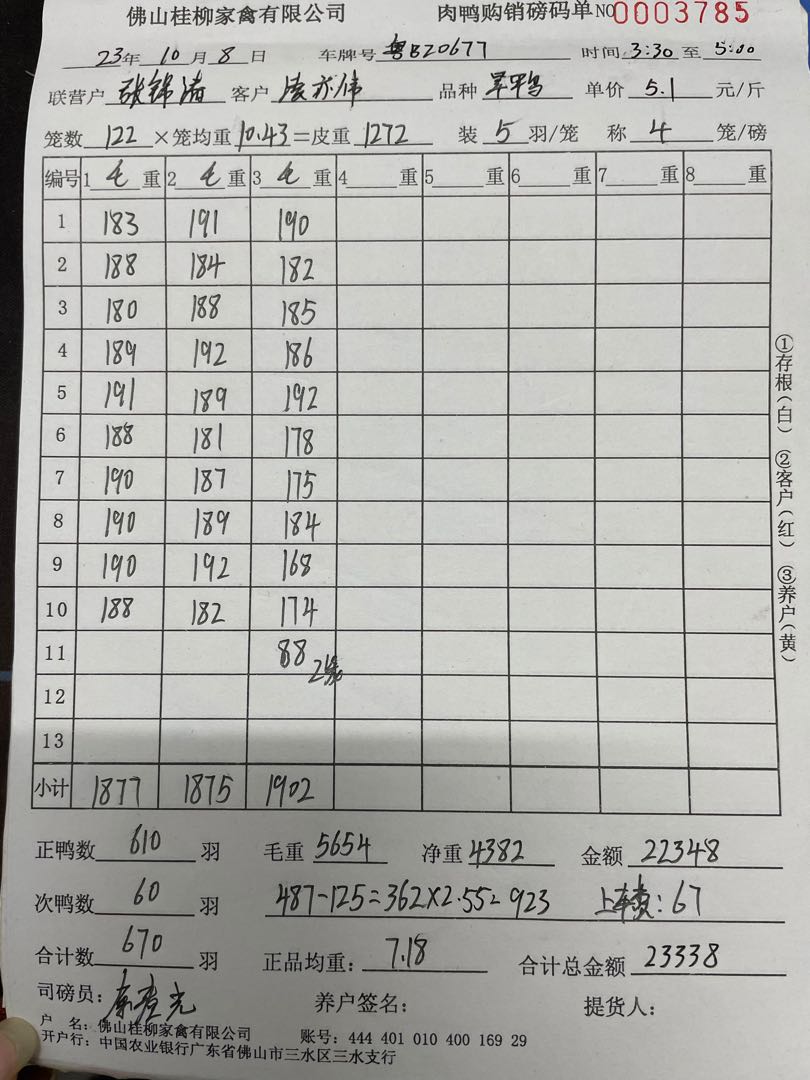 佛山桂柳家禽有限公司 肉鸭购销磅码单 NO0003785
23年 10月 8日 车牌号 粤BZ0677 时间 3:30 至 5:00
联营户 张锦涛 客户 凌亦伟 品种 旱鸭 单价 5.1 元/斤
笼数 122 ×笼均重 10.43 =皮重 1272 装 5 羽/笼 称 4 笼/磅
编号 1 毛 重 2 毛 重 3 毛 重 4 重 5 重 6 重 7 重 8 重
1 183 191 190
2 188 184 182
3 180 188 185
4 189 192 186
5 191 189 192
6 188 181 178
7 190 187 175
8 190 189 184
9 190 192 168
10 188 182 174
11 88 2笼
12
13
小计 1877 1875 1902
①存根(白) ②客户(红) ③养户(黄)
正鸭数 610 羽 毛重 5654 净重 4382 金额 22348
次鸭数 60 羽 487-125=362×2.55=923 上车费:67
合计数 670 羽 正品均重: 7.18 合计总金额 23338
司磅员: 养户签名: 提货人:
户 名: 佛山桂柳家禽有限公司 账号: 444 401 010 400 169 29
开户行: 中国农业银行广东省佛山市三水区三水支行